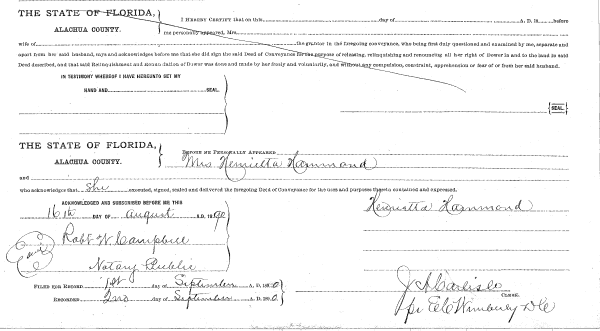 THE STATE OF FLORIDA,
ALACHUA COUNTY.
I HEREBY CERTIFY that on this day of A. D. 18 before
me personally appeared, Mrs.
wife of the grantor in the foregoing conveyance, who being first duly questioned and examined by me, separate and
apart from her said husband, says and acknowledges before me that she did sign the said Deed of Conveyance for the purpose of releasing, relinquishing and renouncing all her right of Dower in and to the land in said
Deed described, and that said Relinquishment and Renunciation of Dower was done and made by her freely and voluntarily, and without any compulsion, constraint, apprehension or fear of or from her said husband.
IN TESTIMONY WHEREOF I HAVE HEREUNTO SET MY
HAND AND SEAL.
SEAL
THE STATE OF FLORIDA,
ALACHUA COUNTY.
BEFORE ME PERSONALLY APPEARED
Mrs Henrietta Hammond
and
who acknowledges that she executed, signed, sealed and delivered the foregoing Deed of Conveyance for the uses and purposes therein contained and expressed.
ACKNOWLEDGED AND SUBSCRIBED BEFORE ME THIS
16th DAY OF August A.D. 1890
Henrietta Hammond
Robt W Campbell
Notary Public
FILED FOR RECORD 1st day of September A. D. 1890
RECORDED 2nd day of September A. D. 1890
J A Carlisle
CLERK.
pr E C Wimberly D C